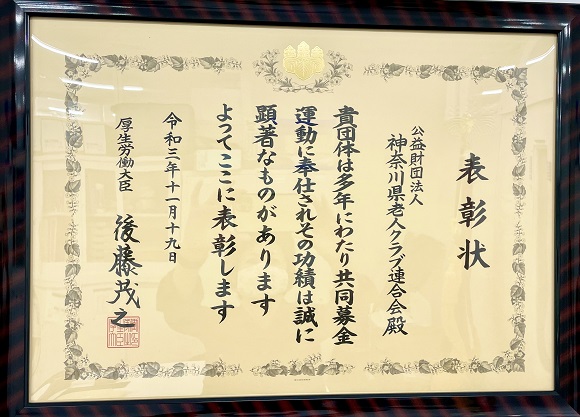 表彰状
公益財団法人
神奈川県老人クラブ連合会殿
貴団体は多年にわたり共同募金
運動に奉仕されその功績は誠に
顕著なものがあります
よってここに表彰します
令和三年十一月十九日
厚生労働大臣
後藤茂之